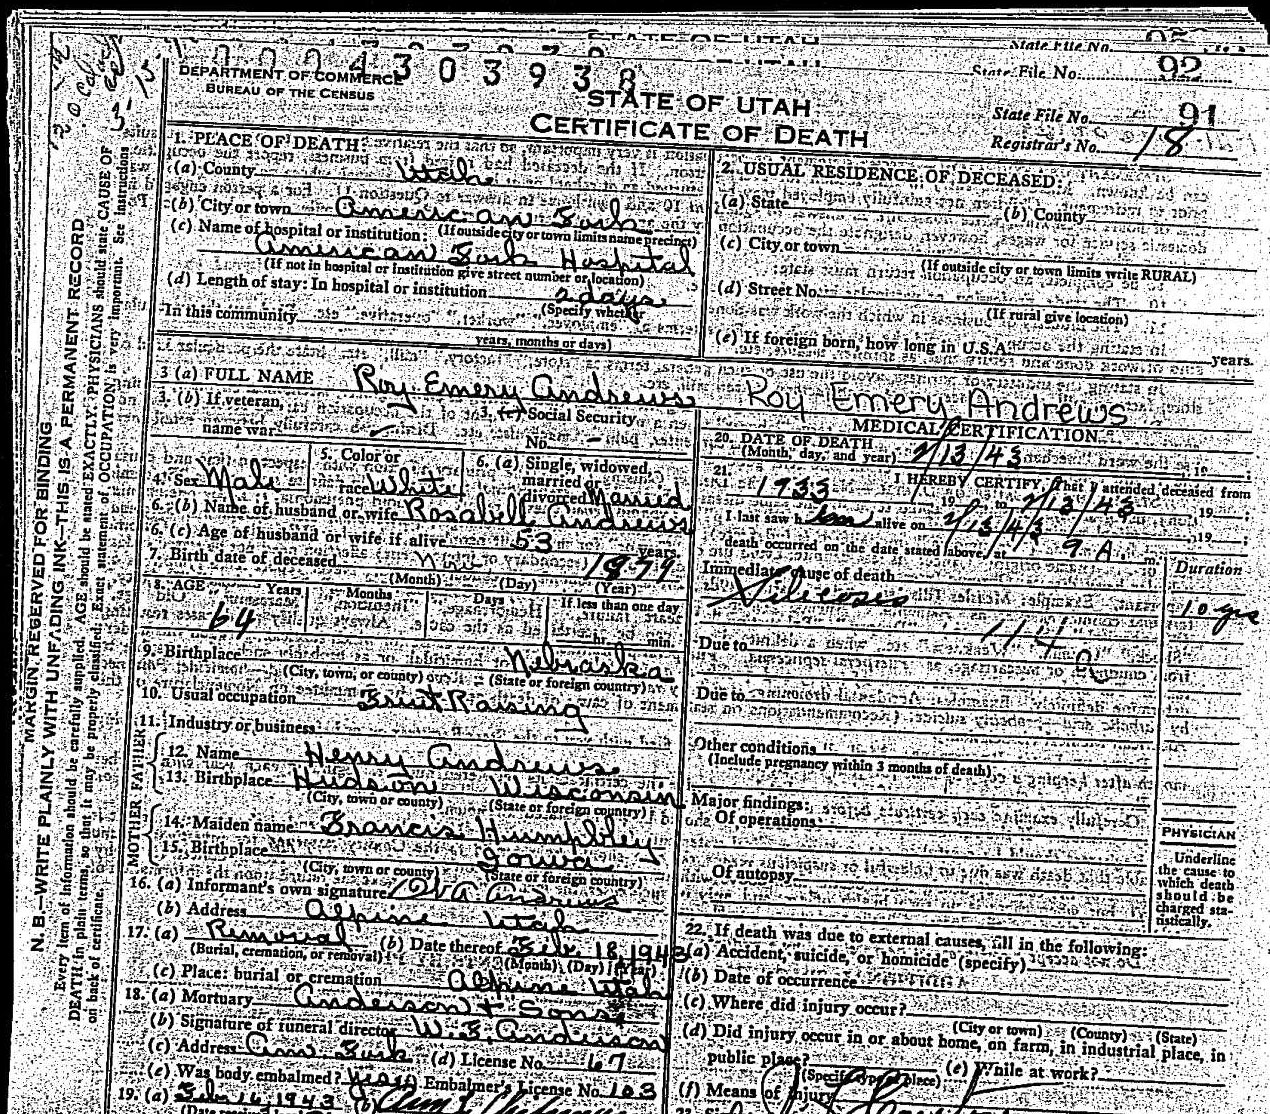 STATE OF UTAH
State File No.
State File No. 92
0004303938
DEPARTMENT OF COMMERCE
BUREAU OF THE CENSUS
STATE OF UTAH
CERTIFICATE OF DEATH
State File No. 91
Registrar's No. 18
MARGIN RESERVED FOR BINDING
N. B.—WRITE PLAINLY WITH UNFADING INK—THIS IS A PERMANENT RECORD
Every item of information should be carefully supplied. AGE should be stated EXACTLY. PHYSICIANS should state CAUSE OF
DEATH in plain terms, so that it may be properly classified. Exact statement of OCCUPATION is very important. See instructions
on back of certificate.
1. PLACE OF DEATH:
(a) County Utah
(b) City or town American Fork
(If outside city or town limits name precinct)
(c) Name of hospital or institution:
American Fork Hospital
(If not in hospital or institution give street number or location)
(d) Length of stay: In hospital or institution 2 days
(Specify whether
In this community
years, months or days)
2. USUAL RESIDENCE OF DECEASED:
(a) State (b) County
(c) City or town
(If outside city or town limits write RURAL)
(d) Street No.
(If rural give location)
(e) If foreign born, how long in U.S.A. years.
3 (a) FULL NAME Roy Emery Andrews Roy Emery Andrews
3. (b) If veteran,
name war
3. (c) Social Security
No. -
4. Sex Male
5. Color or
race White
6. (a) Single, widowed,
married or
divorced Married
6. (b) Name of husband or wife Rosabell Andrews
6. (c) Age of husband or wife if alive 53 years
7. Birth date of deceased Nov 1879
(Month) (Day) (Year)
8. AGE Years Months Days If less than one day
64 hr. min.
9. Birthplace Nebraska
(City, town, or county) (State or foreign country)
10. Usual occupation Fruit Raising
11. Industry or business
FATHER
12. Name Henry Andrews
13. Birthplace Hudson Wisconsin
(City, town or county) (State or foreign country)
MOTHER
14. Maiden name Francis Humphley
15. Birthplace Iowa
(City, town or county) (State or foreign country)
16. (a) Informant's own signature Andrews
(b) Address Alpine Utah
17. (a) Removal (b) Date thereof Feb. 18, 1943
(Burial, cremation, or removal) (Month) (Day) (Year)
(c) Place: burial or cremation Alpine Utah
18. (a) Mortuary Anderson & Sons
(b) Signature of funeral director W. E. Anderson
(c) Address Am Fork (d) License No. 67
(e) Was body embalmed? Yes Embalmer's License No. 103
19. (a) Feb 16, 1943 (b)
MEDICAL CERTIFICATION
20. DATE OF DEATH
(Month, day, and year) 2/13/43 19
21. I HEREBY CERTIFY, That I attended deceased from
1933 19 to 2/13/43 19
I last saw him alive on 2/13/43 19
death occurred on the date stated above, at 9 A. m.
Immediate cause of death
Silicosis
Duration
10 yrs
114 a
Due to
Due to
Other conditions
(Include pregnancy within 3 months of death)
Major findings:
Of operations
Of autopsy
PHYSICIAN
Underline
the cause to
which death
should be
charged sta-
tistically.
22. If death was due to external causes, fill in the following:
(a) Accident, suicide, or homicide (specify)
(b) Date of occurrence
(c) Where did injury occur?
(City or town) (County) (State)
(d) Did injury occur in or about home, on farm, in industrial place, in
public place?
(Specify type of place)
(e) While at work?
(f) Means of injury